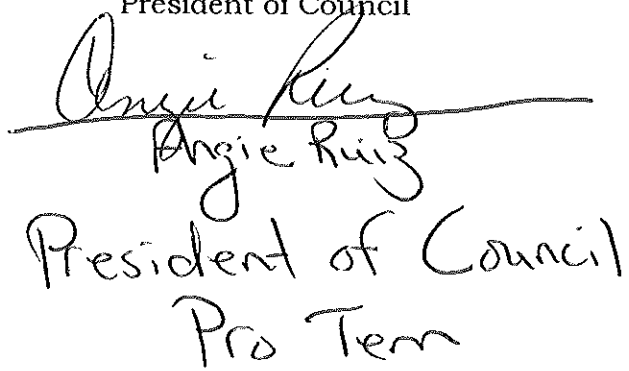 President of Council
Angie Ruiz
Angie Ruiz
President of Council
Pro Tem